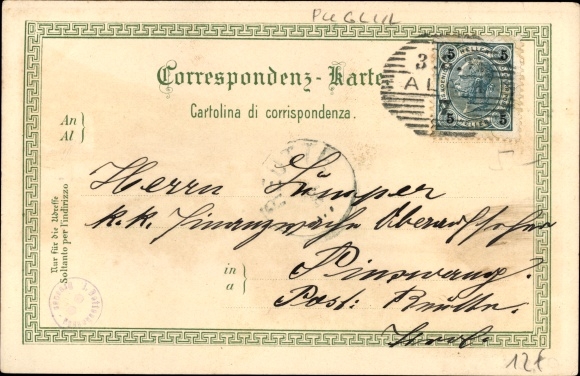 Correspondenz-Karte
Cartolina di corrispondenza.
5 5
3
AL
5 5
An
Al
Nur für die Adresse
Soltanto per l'indirizzo
Herrn Sümper
k.k. Finanzwache Oberaufseher
in
a
Pinswang
Post: Reutte
Tirol
12€